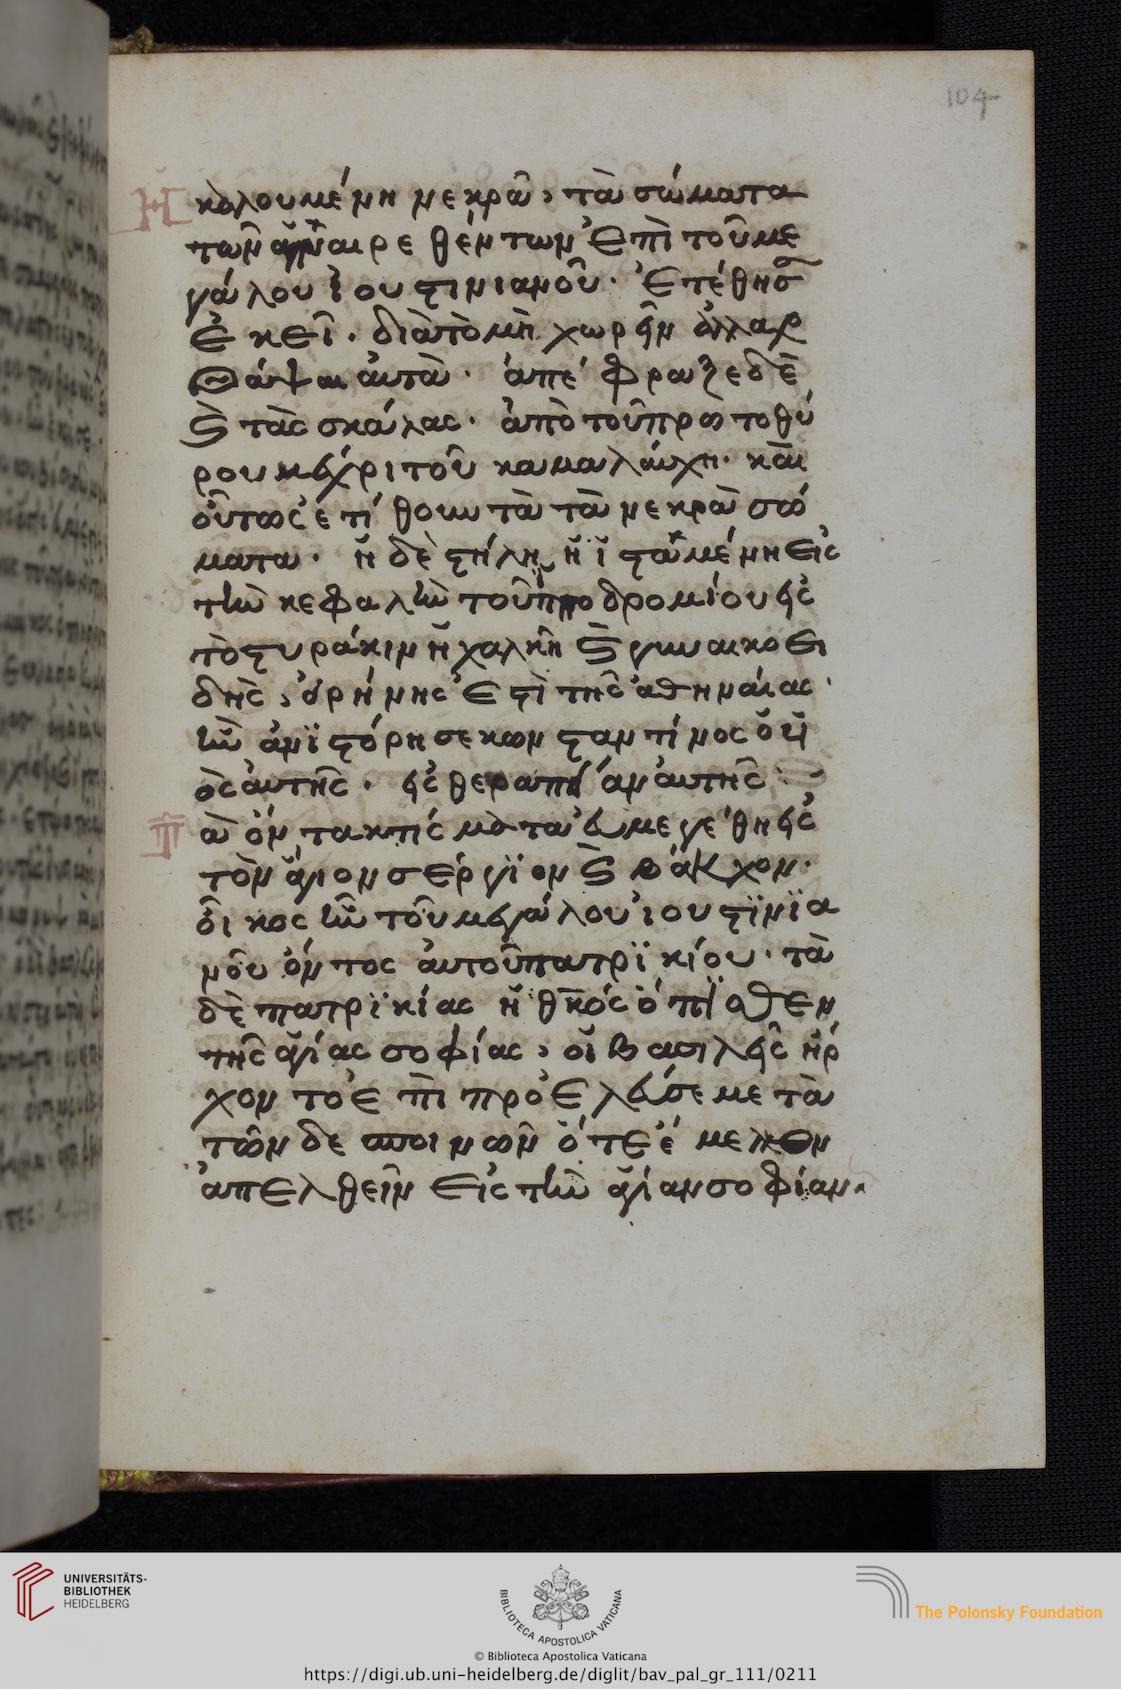 104
Ἡ καλουμένη νεκρᾶ, τὰ σώματα
τῶν ἀναιρεθέντων ἐπὶ τοῦ με
γάλου ἰουστινιανοῦ· ἐτέθησ
ἐκεῖ· διὰ τὸ μὴ χωρεῖν ἀλλαχ
θάψαι αὐτὰ· ἀπέφραξε δὲ
καὶ τὰς σκάλας· ἀπὸ τοῦ πρωτοθύ
ρου μέχρι τοῦ καμαλαύχη· καὶ
οὕτως ἐτίθουν τὰ τὰ νεκρὰ σώ
ματα· ἡ δὲ στήλη ἡ ἱσταμένη εἰς
τὴν κεφαλὴν τοῦ ἱπποδρομίου εἰς
τὸ στυράκιν ἡ χαλκῆ καὶ γυναικοει
δὴς, εἰρήνης ἐστὶ τῆς ἀθηναίας·
ἣν ἀνϊστόρησε κωνσταντίνος ὁ υἱ
ὸς αὐτῆς· εἰς θεραπείαν αὐτῆς
ὰ ὄντα κτίσματα ἐνμεγέθη εἰς
τὸν ἅγιον σέργϊον καὶ βάκχον·
οἶκος ἦν τοῦ μεγάλου ἰουστϊνϊα
νοῦ ὄντος αὐτοῦ πατρϊκίου· τὰ
δὲ πατρϊκίας ἡ θκός ὄπϊσθεν
τῆς ἁγίας σοφίας, οἱ βασιλεῖς ἤρ
χοντο ἐπὶ προέλευσε μετὰ
τῶν δεσποινῶν ὅτε ἔμελλον
ἀπελθεῖν εἰς τὴν ἁγίαν σοφίαν.
UNIVERSITÄTS-
BIBLIOTHEK
HEIDELBERG
BIBLIOTECA APOSTOLICA VATICANA
The Polonsky Foundation
© Biblioteca Apostolica Vaticana
https://digi.ub.uni-heidelberg.de/diglit/bav_pal_gr_111/0211